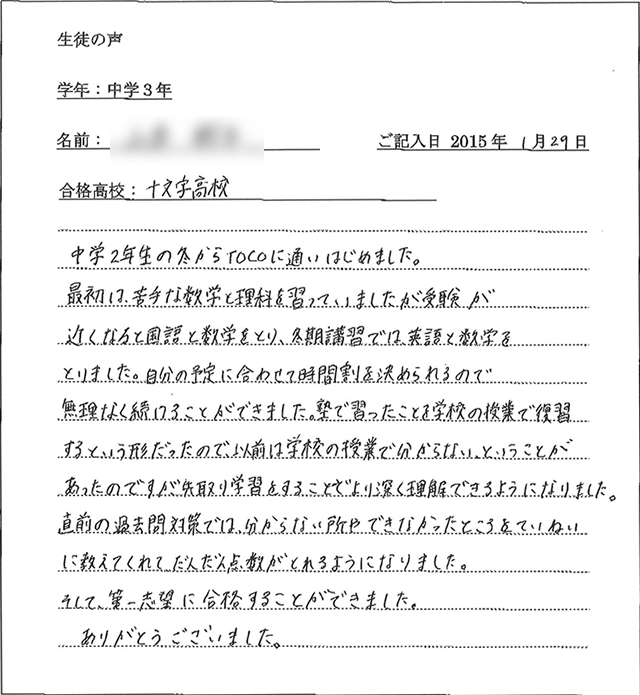 生徒の声
学年：中学３年
名前：
ご記入日 2015年 1月29日
合格高校：十文字高校
中学2年生の冬からTOCOに通いはじめました。
最初は、苦手な数学と理科を習っていましたが受験が
近くなると国語と数学をとり、冬期講習では、英語と数学を
とりました。自分の予定に合わせて時間割を決められるので
無理なく続けることができました。塾で習ったことを学校の授業で復習
するという形だったので、以前は学校の授業で分からない、ということが
あったのですが先取り学習をすることでより深く理解できるようになりました。
直前の過去問対策では、分からない所やできなかったところをていねい
に教えてくれてだんだん点数がとれるようになりました。
そして、第一志望に合格することができました。
ありがとうございました。